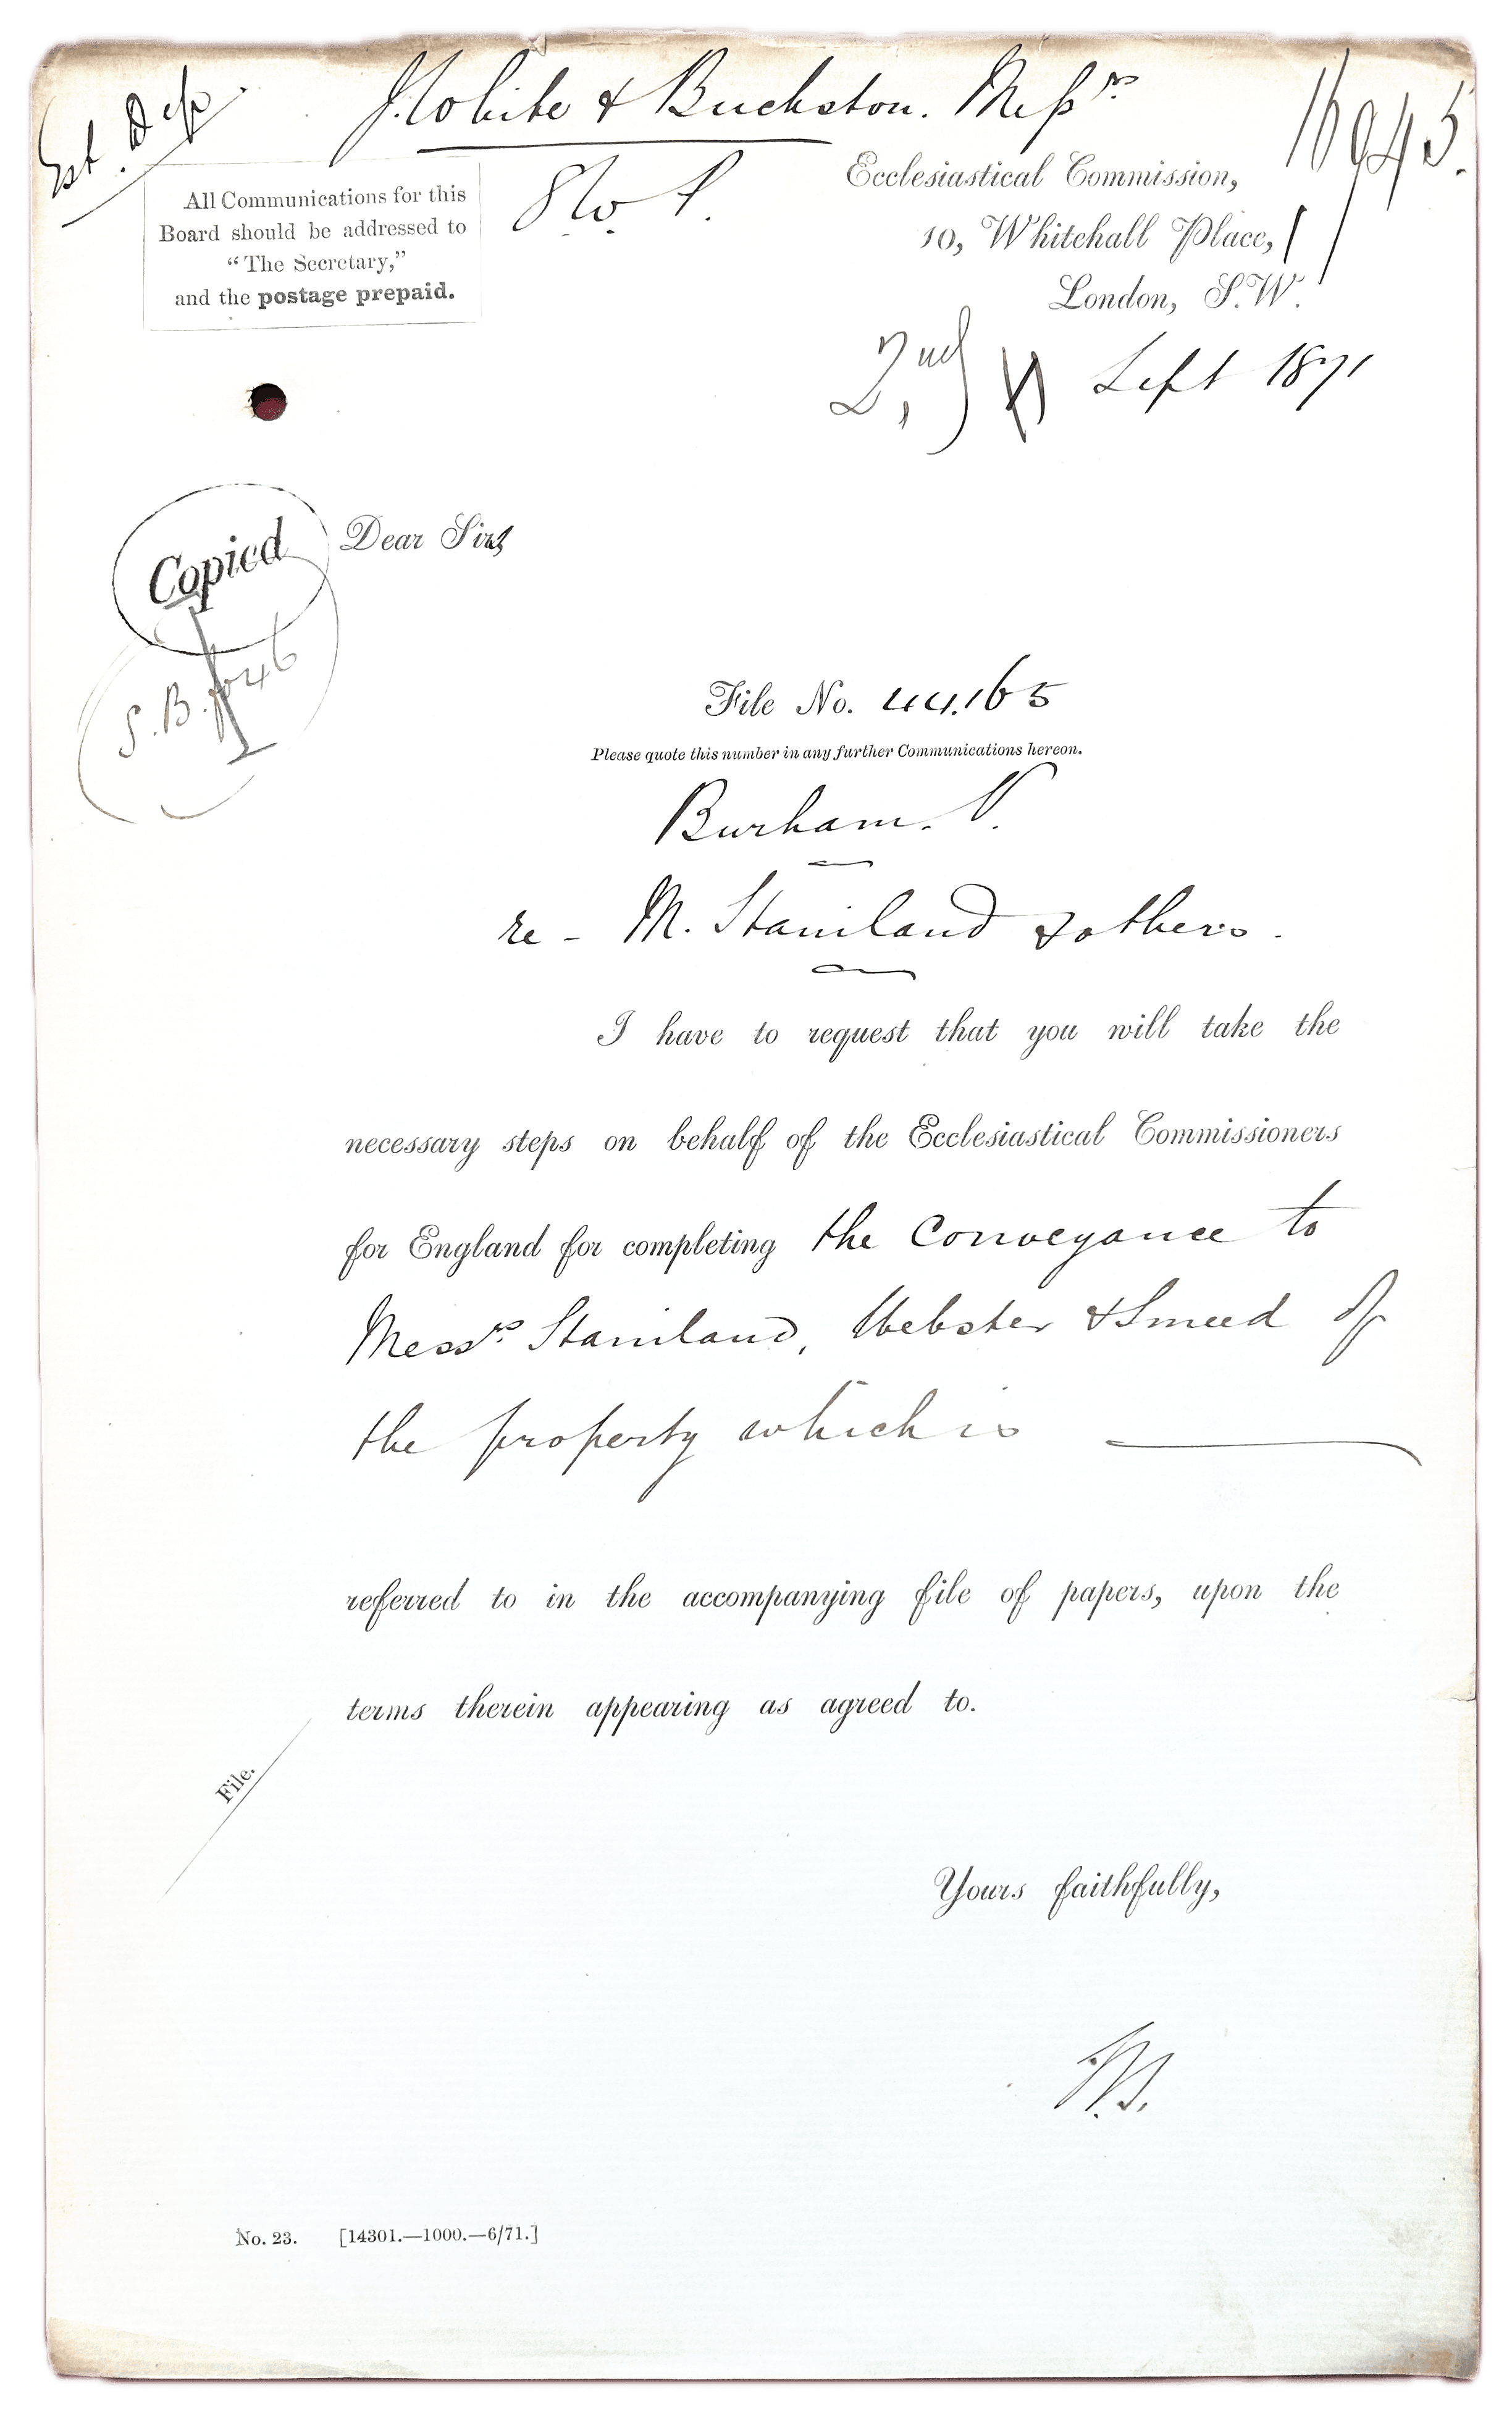 Est. Dep.
J. White & Buckston. Messrs
16945.
All Communications for this
Board should be addressed to
“The Secretary,”
and the postage prepaid.
Ecclesiastical Commission,
10, Whitehall Place,
London, S.W.
2nd Sept 1871
Copied
Dear Sirs
S.B.
File No. 44.165
Please quote this number in any further Communications hereon.
Burham. V.
re - M. Staniland & others.
I have to request that you will take the
necessary steps on behalf of the Ecclesiastical Commissioners
for England for completing the Conveyance to
Messrs. Staniland, Webster & Smeed of
the property which is
referred to in the accompanying file of papers, upon the
terms therein appearing as agreed to.
File.
Yours faithfully,
No. 23. [14301.—1000.—6/71.]